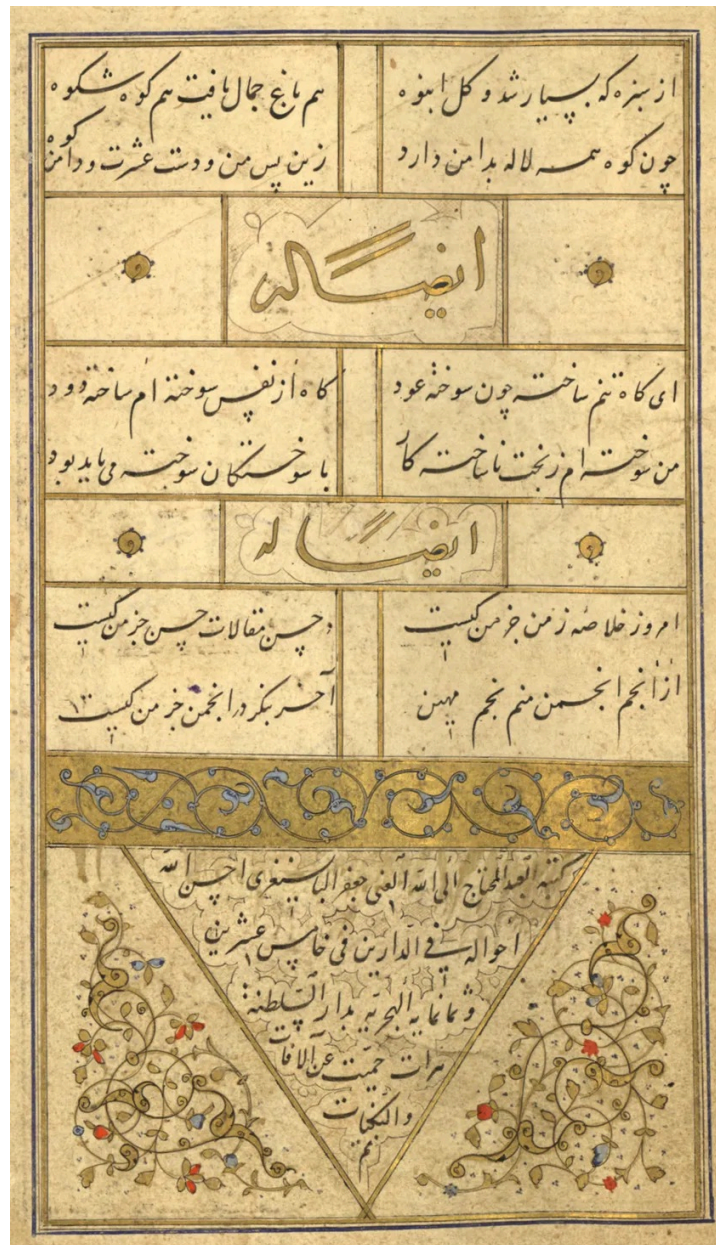 از سبزه که بسیار شد و کل انبوه هم باغ جمال یافت هم کوه شکوه
چون کوه همه لاله بدامن دارد زین پس من و دست عشرت و دامن کوه
ایضا له
ای کاه تنم ساخته چون سوخته عود کاه از نفس سوخته ام ساخته دود
من سوخته ام ز بخت ناساخته کار با سوختکان سوخته می باید بود
ایضا له
امروز خلاصه زمن جز من کیست در حسن مقالات حسن جز من کیست
از انجم انجمن منم نجم مهین آخر بنکر در انجمن جز من کیست
کتبه العبد المحتاج الی الله الغنی جعفر البایسنغری احسن الله
احواله فی الدارین فی خامس عشرین
و ثمانمایه الهجریه بدار السلطنه
هرات حمیت عن الآفات
والنکبات
تم